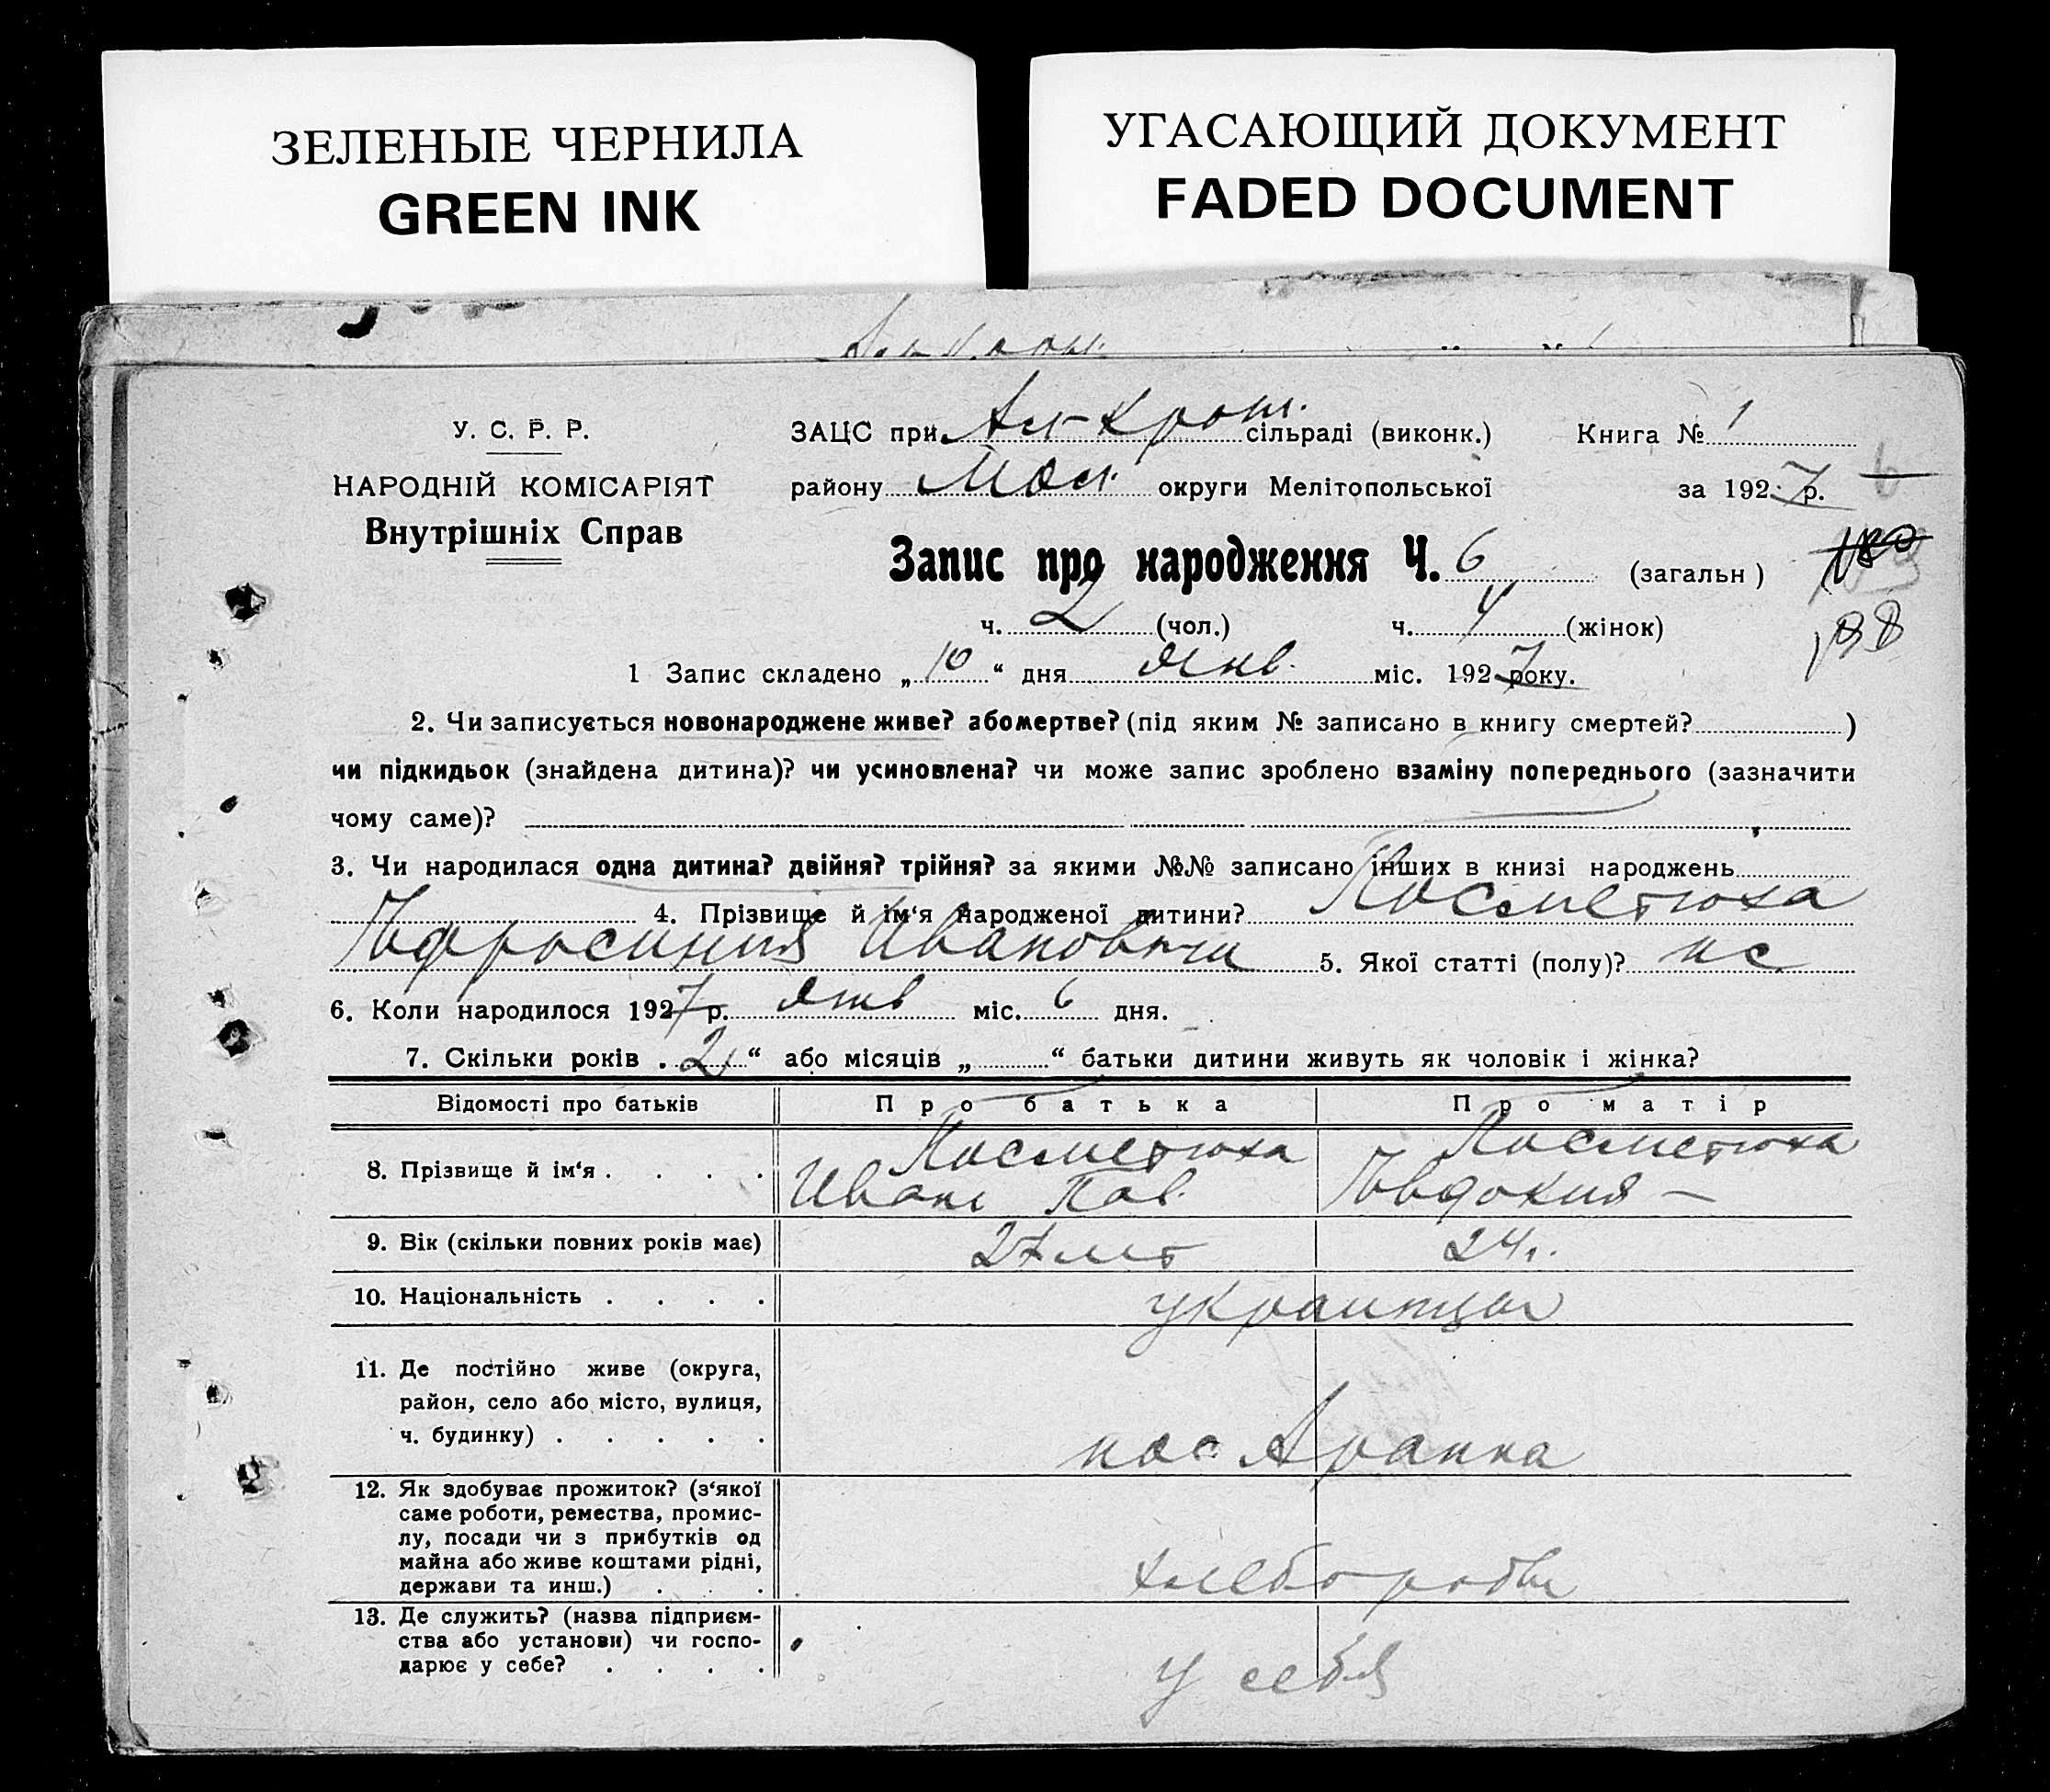 ЗЕЛЕНЫЕ ЧЕРНИЛА
GREEN INK
УГАСАЮЩИЙ ДОКУМЕНТ
FADED DOCUMENT
У. С. Р. Р.
НАРОДНІЙ КОМІСАРІЯТ
Внутрішніх Справ
ЗАЦС при сільраді (виконк.) Книга № 1
району округи Мелітопольської за 1927 р. 6
Запис про народження Ч. 6 (загальн )
ч. 2 (чол.) ч. 4 (жінок)
188
1 Запис складено „ 10 “ дня Янв. міс. 1927 року.
2. Чи записується новонароджене живе? або мертве? (під яким № записано в книгу смертей? )
чи підкидьок (знайдена дитина)? чи усиновлена? чи може запис зроблено взаміну попереднього (зазначити
чому саме)?
3. Чи народилася одна дитина? двійня? трійня? за якими №№ записано інших в книзі народжень
4. Прізвище й ім‘я народженої дитини? Косметюха
Ефросиния Ивановна 5. Якої статті (полу)?
6. Коли народилося 1927 р. янв міс. 6 дня.
7. Скільки років „ 2 “ або місяців „ “ батьки дитини живуть як чоловік і жінка?
Відомості про батьків Про батька Про матір
8. Прізвище й ім‘я . . . . Косметюха Косметюха
Иван Пав. Евдокия —
9. Вік (скільки повних років має) 27 лет 24 г.
10. Національність . . . . украинцы
11. Де постійно живе (округа,
район, село або місто, вулиця,
ч. будинку) . . . . . пос.
12. Як здобуває прожиток? (з‘якої
саме роботи, ремества, промис-
лу, посади чи з прибутків од
майна або живе коштами рідні,
держави та инш.) . . . хлеборобы
13. Де служить? (назва підприєм-
ства або установи) чи госпо-
дарює у себе? . . . . у себя